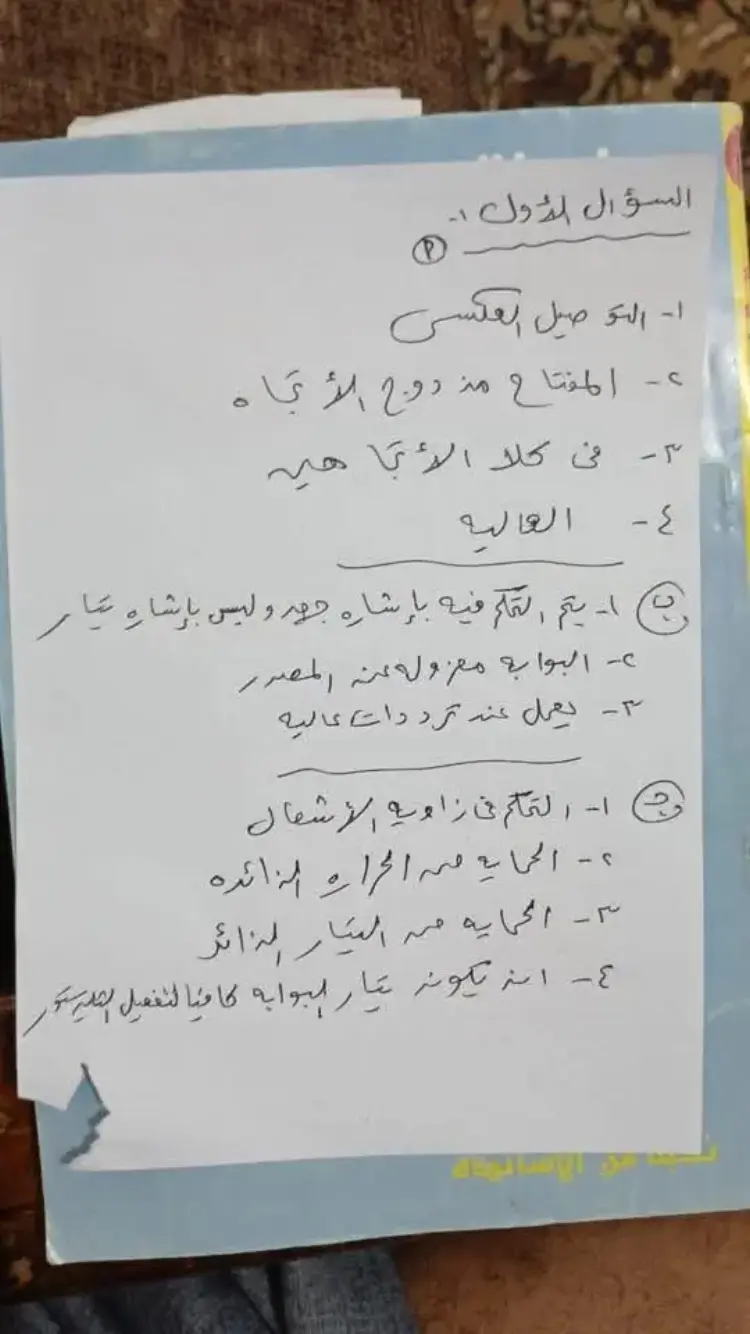 السؤال الأول :-
أ
١- التوصيل العكسى
٢- المفتاح مزدوج الأتجاه
٣- فى كلا الأتجاهين
٤- العاليه
ب ١- يتم التحكم فيه بإشاره جهد وليس بإشاره تيار
٢- البوابه معزوله عن المصدر
٣- يعمل عند ترددات عاليه
جـ ١- التحكم فى زاويه الأشعال
٢- الحمايه من الحراره الزائده
٣- الحمايه من التيار الزائد
٤- ان يكون تيار البوابه كافيا لتفعيل الثايرستور